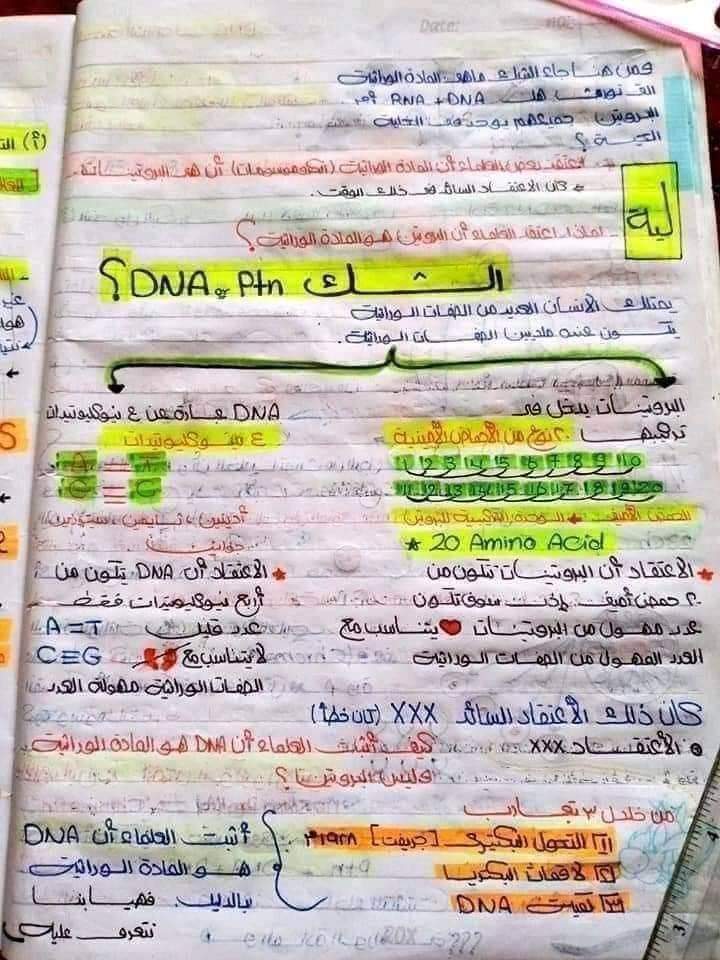 فمن هنا جاء الشك ماهى المادة الوراثية
هل DNA + RNA أم
البروتين جميعهم يوجد فى الخلية
الحية ؟
* اعتقد بعض العلماء أن المادة الوراثية (الكروموسومات) أن هى البروتينات.
* كان الاعتقاد السائد فى ذلك الوقت.
ليه
لماذا اعتقد العلماء أن البروتين هو المادة الوراثية ؟
الشك DNA or Ptn ؟
يمتلك الانسان العديد من الصفات الوراثية
يتكون عنده ملايين الصفات الوراثية.
البروتينات يدخل فى
تركيبها ٢٠ نوع من الأحماض الأمينية
1 2 3 4 5 6 7 8 9 10
11 12 13 14 15 16 17 18 19 20
الحمض الأمينى ← الوحدة التركيبية للبروتين
* 20 Amino Acid
* الاعتقاد أن البروتينات تتكون من
٢٠ حمض أمينى. إذن سوف تكون
عدد مهول من البروتينات يتناسب مع
العدد المهول من الصفات الوراثية
DNA عبارة عن ٤ نيوكليوتيدات
٤ نيوكليوتيدات
A = T
C ≡ C
أدينين، ثايمين، سيتوزين
جوانين
* الاعتقاد أن DNA يتكون من
أربع نيوكليوتيدات فقط
عدد قليل A = T
لا يتناسب مع C ≡ G
الصفات الوراثية مهولة العدد
كان ذلك الاعتقاد السائد XXX (كان خطأ)
● الاعتقاد XXX كيف أثبت العلماء أن DNA هو المادة الوراثية
وليس البروتينا ؟
من خلال ٣ تجارب
[1] التحول البكتيرى [جريفث] ١٩٢٨م
[2] لاقمات البكتريا
[3] كمية DNA
أثبت العلماء أن DNA
هو المادة الوراثية
بالدليل. فهيا بنا
نتعرف عليه